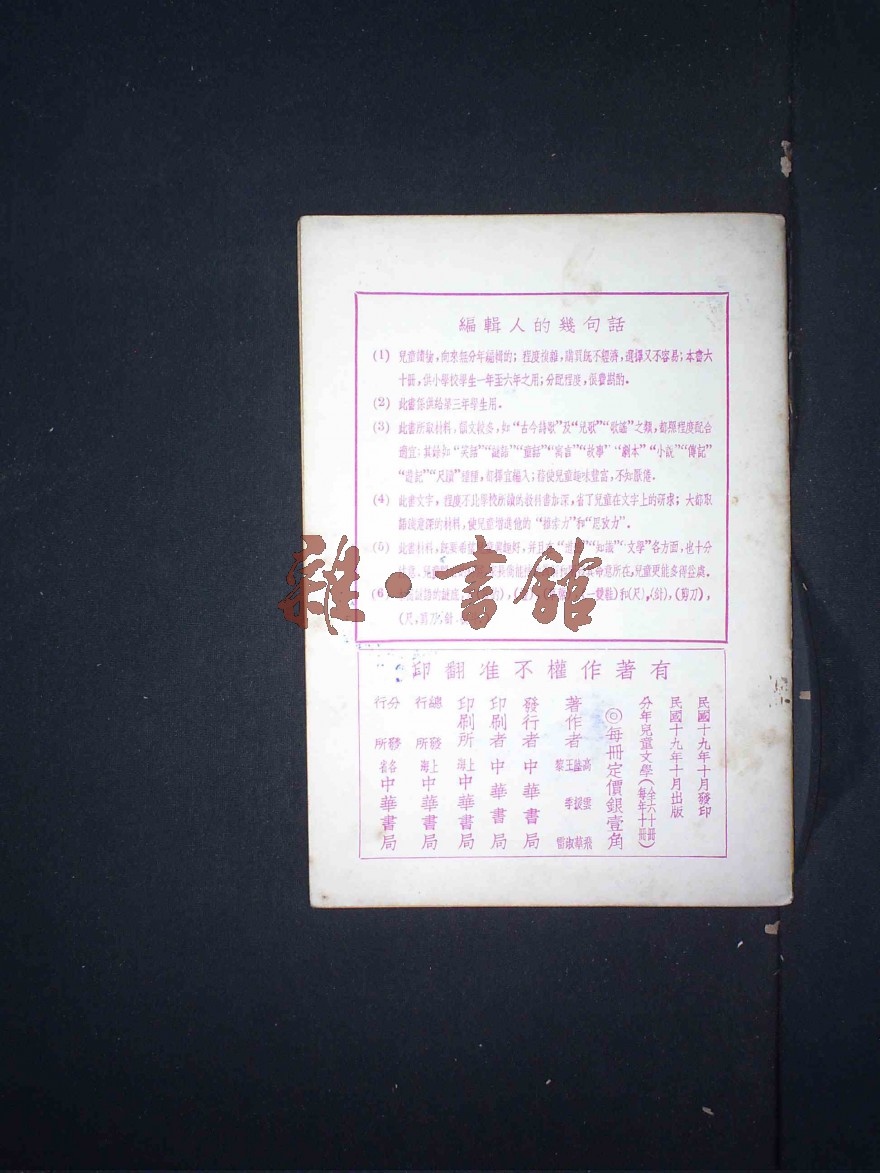 編輯人的幾句話
(1) 兒童讀物，向來無分年編輯的；程度複雜，購買既不經濟，選擇又不容易；本書六
十冊，供小學校學生一年至六年之用；分配程度，很費斟酌．
(2) 此書係供給第三年學生用．
(3) 此書所取材料，韻文較多，如“古今詩歌”及“兒歌”“歌謠”之類，都照程度配合
適宜；其餘如“笑話”“謎語”“童話”“寓言”“故事”“劇本”“小說”“傳記”
“遊記”“尺牘”，都擇宜編入；務使兒童趣味豐富，不知厭倦．
(4) 此書文字，程度不比學校所讀的教科書加深，省了兒童在文字上的研求；大都取
語淺意深的材料，使兒童增進他的“推索力”和“思攷力”．
(5) 此書材料，“知識”“文學”各方面，也十分
意所在，兒童更能多得益處．
(6) 謎語的謎底 一雙鞋)和(尺)，(針)，(剪刀)，
(尺，剪刀，針
有著作權不准翻印
民國十九年十月發印
民國十九年十月出版
分年兒童文學(全六十冊 每年十冊)
◎每冊定價銀壹角
著作者 高雲飛 陸授華 王淑 黎季雷
發行者 中華書局
印刷者 中華書局
印刷所 上海 中華書局
總發行所 上海 中華書局
分發行所 各省 中華書局
雜·書館